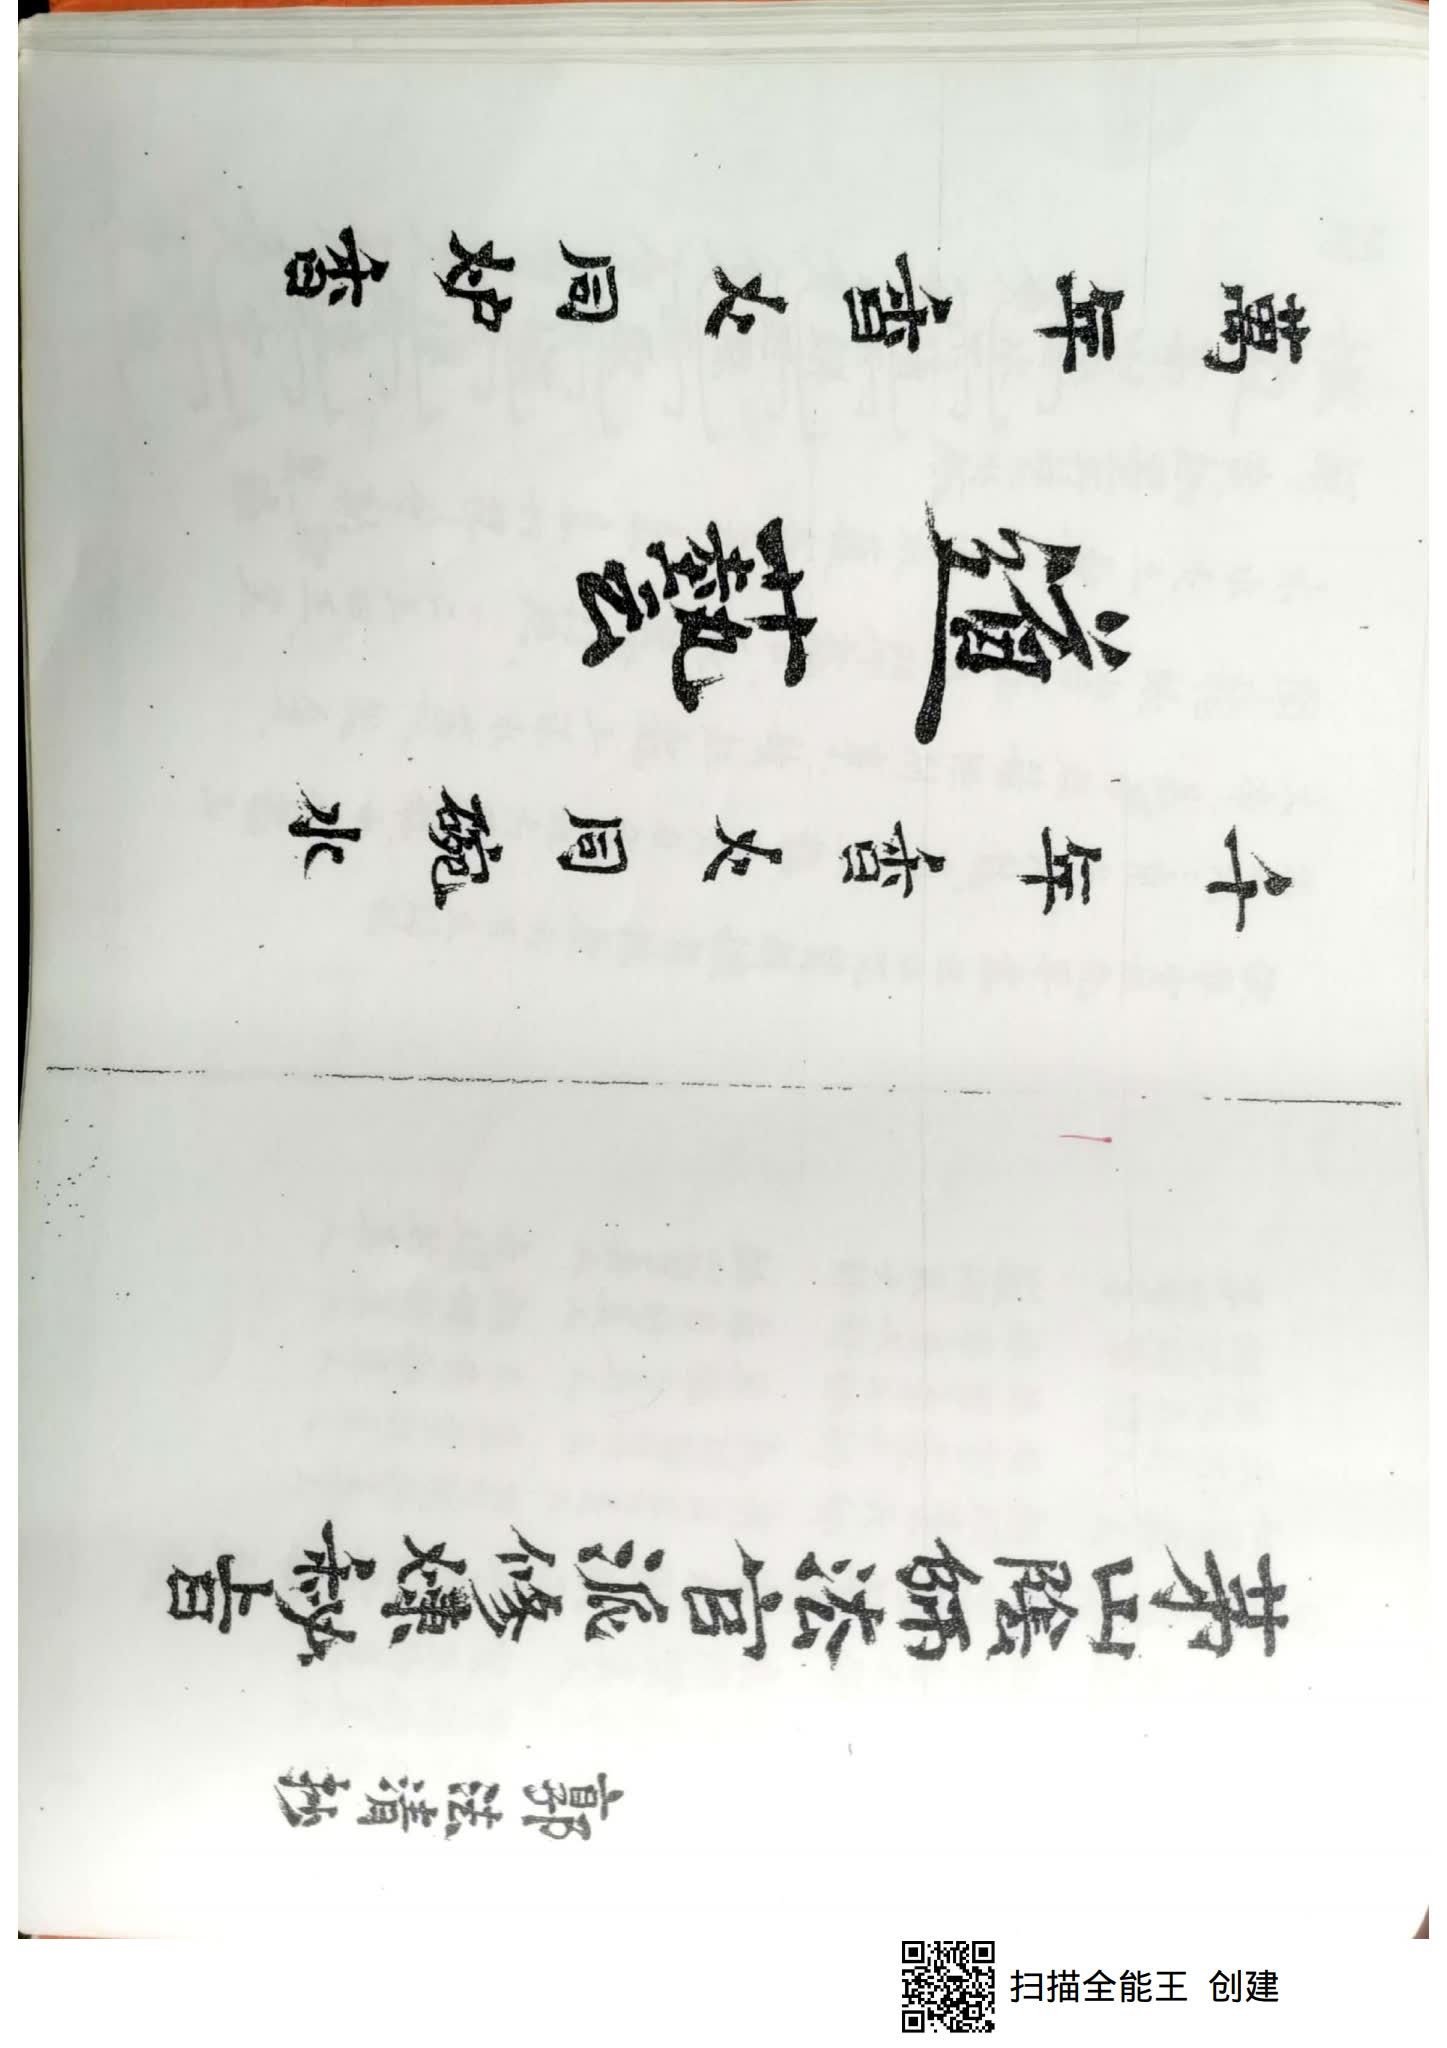 郭法清抄
茅山陰師法官派修煉秘旨
千年香火同碗水
道藝
萬年香火同炉香
扫描全能王 创建